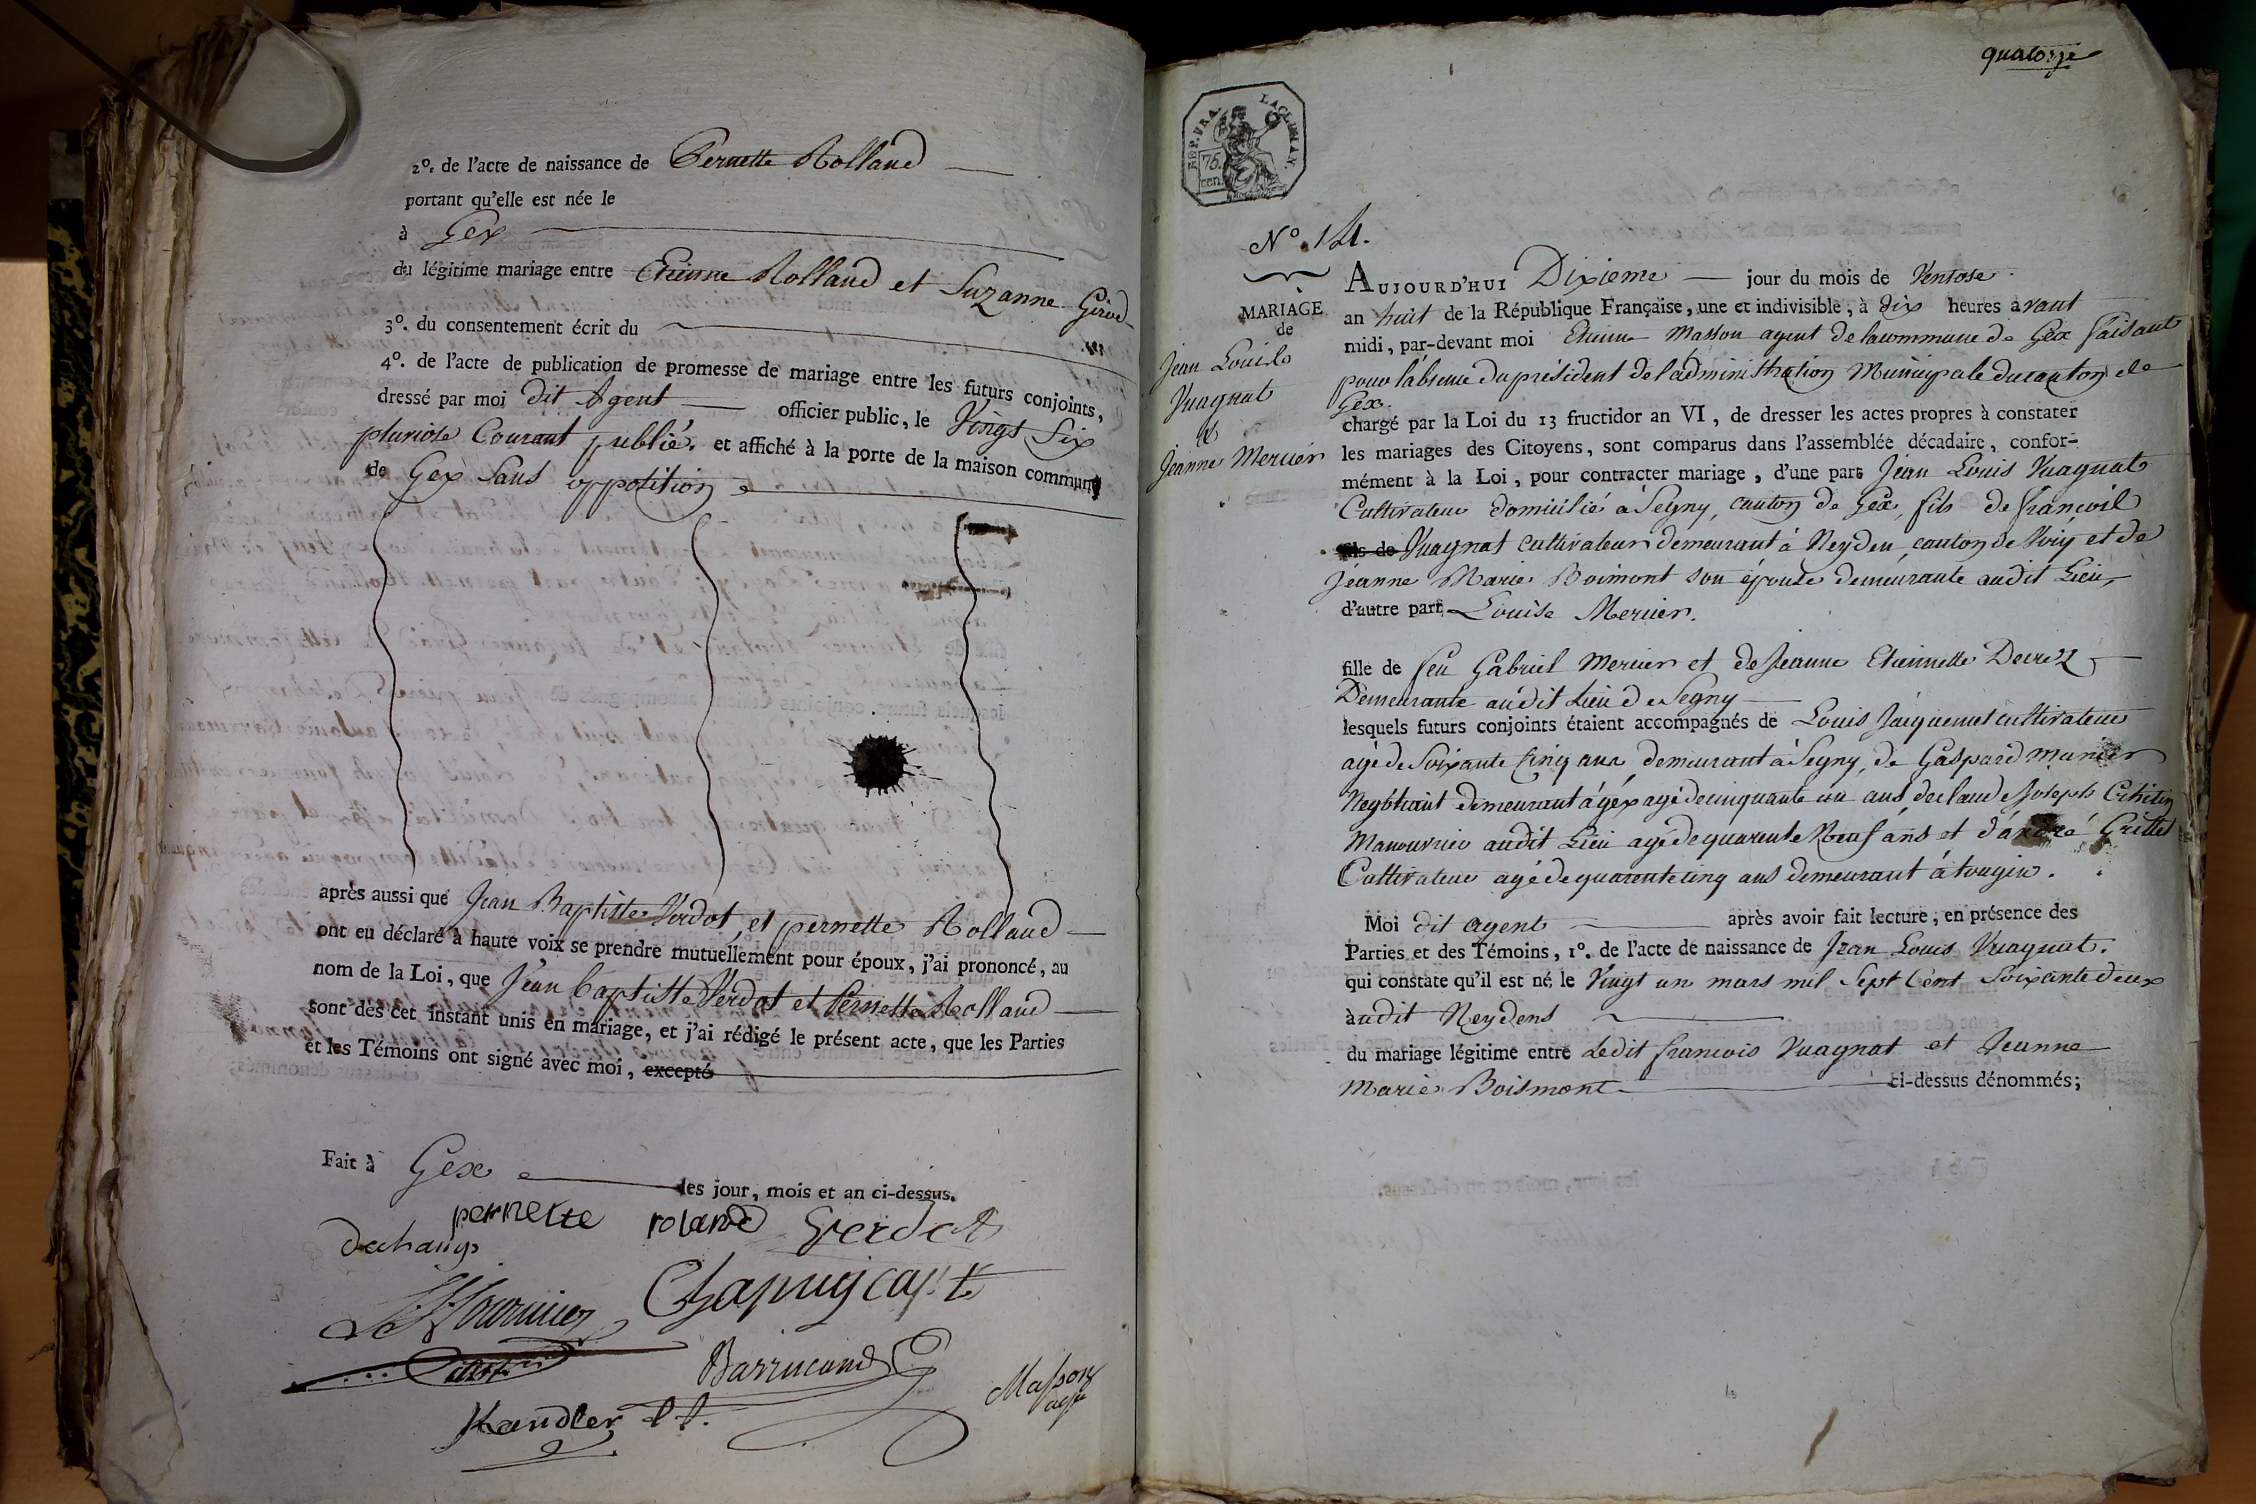 2º. de l'acte de naissance de Pernette Rolland
portant qu'elle est née le
à Gex
du légitime mariage entre Etienne Rolland et Suzanne Girod
3º. du consentement écrit du
4º. de l'acte de publication de promesse de mariage entre les futurs conjoints,
dressé par moi dit Agent officier public, le Vingt Six
pluviose Courant publié, et affiché à la porte de la maison commune
de Gex Sans oppotition
après aussi que Jean Baptiste Verdot, et pernette Rolland
ont eu déclaré à haute voix se prendre mutuellement pour époux, j'ai prononcé, au
nom de la Loi, que Jean baptiste Verdot et Pernette Rolland
sont dès cet instant unis en mariage, et j'ai rédigé le présent acte, que les Parties
et les Témoins ont signé avec moi, excepté
Fait à Gex les jour, mois et an ci-dessus.
pernette rolande Verdot
dechamps
Fournier Chapuis capt
Barrucand
Kandler Lt. Masson agt
quatorze
REP. FRA. 75. cen.
Nº. 14.
MARIAGE
de
Jean Louis
Vuagnat
et
Jeanne Mercier
AUJOURD'HUI Dixieme jour du mois de Ventose
an huit de la République Française, une et indivisible, à dix heures avant
midi, par-devant moi Etienne Masson agent de la commune de Gex faisant
pour l'absence du président de l'administration Municipale du canton de
Gex.
chargé par la Loi du 13 fructidor an VI, de dresser les actes propres à constater
les mariages des Citoyens, sont comparus dans l'assemblée décadaire, confor-
mément à la Loi, pour contracter mariage, d'une part Jean Louis Vuagnat
Cultivateur domicilié à Segny, canton de Gex, fils de françois
fils de Vuagnat cultivateur demeurant à Neyden, canton de Viry et de
Jeanne Marie Boimont son épouse demeurante audit Lieu,
d'autre part Louise Mercier.
fille de feu Gabriel Mercier et de Jeanne Etiennette Decrez
Demeurante audit Lieu de Segny
lesquels futurs conjoints étaient accompagnés de Louis Jacquemet cultivateur
agé de Soixante Cinq ans demeurant à Segny, de Gaspard Munier
Negotiant demeurant à géx agé de cinquante un ans, de claude Joseph
Manouvrier audit Lieu agé de quarente Neuf ans et d'andré Grillet
Cultivateur agé de quarente cinq ans demeurant à tougin.
Moi dit agent après avoir fait lecture, en présence des
Parties et des Témoins, 1º. de l'acte de naissance de Jean Louis Vuagnat.
qui constate qu'il est né le Vingt un mars mil Sept Cent Soixante deux
audit Neydens
du mariage légitime entre Ledit francois Vuagnat et Jeanne
Marie Boismont ci-dessus dénommés;